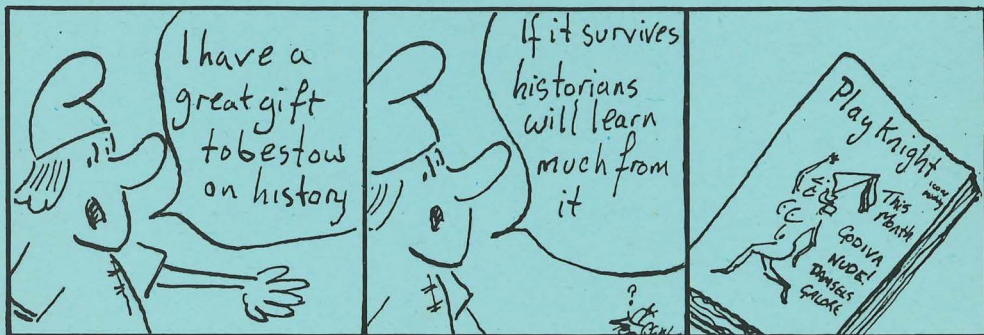 I have a
great gift
to bestow
on history
If it survives
historians
will learn
much from
it
?
Play Knight
This
Month
GODIVA
NUDE!
DAMSELS
GALORE